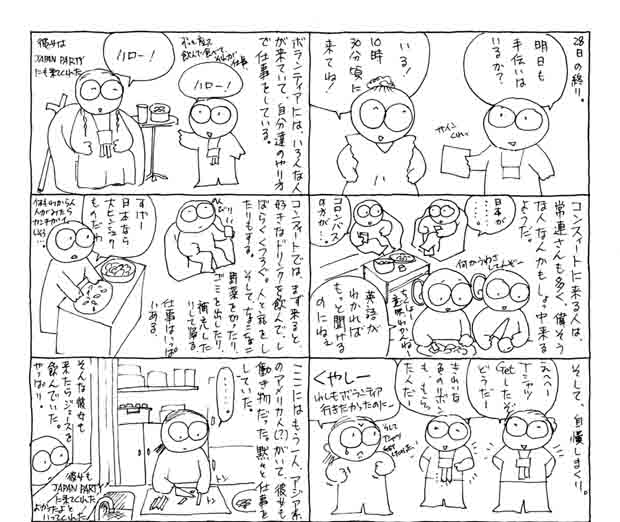 28日の終り。
明日も
手伝いは
いるか?
いる!
10時
30分頃に
来てね!
サインくれ。
ボランティアには、いろんな人
が来ていて、自分達のやり方
で仕事をしている。
ハロー!
ハロー!
彼女は
JAPAN PARTY
にも来てくれた
コンスィートに来る人は、
常連さんも多く、偉そう
な人なんかもしょっ中来る
ようだ。
日本が
コロンバス
の方が…
何かうわさ
してんぞー
英語が
わかれば
もっと聞ける
のにねぇ
コンスィートでは、まず来ると、
好きなドリンクを飲んで、し
ばらくくつろぐ。人と話をし
たりもする。そして、たまに
ゴミを出したり、
野菜を切ったり、
補充した
りして帰る。
仕事はいっぱい
ある。
すげー
日本なら
大ヒンシュク
ものだわ
そして、自慢しまくり。
えへへー
Tシャツ
Getしたぞ
どうだー
きれいな
色のリボン
も、もらっ
たんだー
くやしー
わしもボランティア
行きたかったのにー
ここにはもう一人、アジア系
のアメリカ人(?)がいて、彼女も
働き物だった。黙々と仕事を
していた。
トン
トン
そんな彼女も
来たらジュースを
飲んでいた。
やっぱり。
彼女も
JAPAN PARTY
に来てくれた
よかったよと
いってくれた